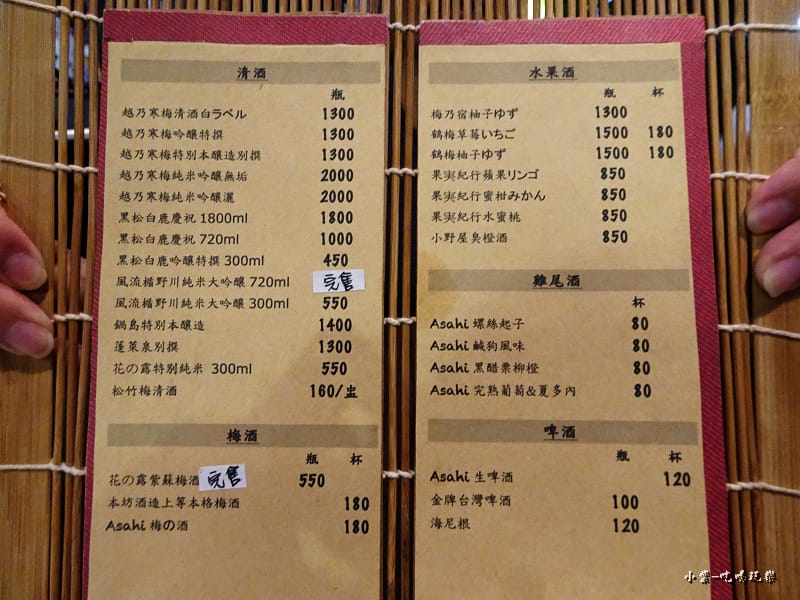 清酒
瓶
越乃寒梅清酒白ラベル 1300
越乃寒梅吟釀特撰 1300
越乃寒梅特別本釀造別撰 1300
越乃寒梅純米吟釀無垢 2000
越乃寒梅純米吟釀灑 2000
黑松白鹿慶祝 1800ml 1800
黑松白鹿慶祝 720ml 1000
黑松白鹿吟釀特撰 300ml 450
風流楯野川純米大吟釀 720ml 完售
風流楯野川純米大吟釀 300ml 550
鍋島特別本釀造 1400
蓬萊泉別撰 1300
花の露特別純米 300ml 550
松竹梅清酒 160/盅
梅酒
瓶 杯
花の露紫蘇梅酒 完售 550
本坊酒造上等本格梅酒 180
Asahi 梅の酒 180
水果酒
瓶 杯
梅乃宿柚子ゆず 1300
鶴梅草莓いちご 1500 180
鶴梅柚子ゆず 1500 180
果実紀行蘋果リンゴ 850
果実紀行蜜柑みかん 850
果実紀行水蜜桃 850
小野屋臭橙酒 850
雞尾酒
杯
Asahi 螺絲起子 80
Asahi 鹹狗風味 80
Asahi 黑醋栗柳橙 80
Asahi 完熟葡萄&夏多內 80
啤酒
瓶 杯
Asahi 生啤酒 120
金牌台灣啤酒 100
海尼根 120
小紫-吃喝玩樂